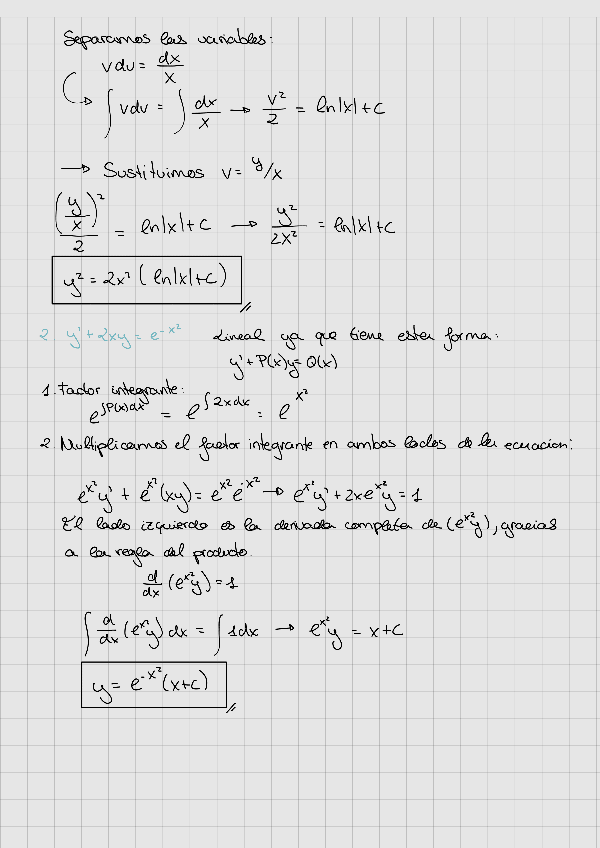 Separamos las variables:
vdv = dx/x
∫ vdv = ∫ dx/x → v²/2 = ln|x|+c
→ Sustituimos v = y/x
(y/x)²/2 = ln|x|+c → y²/2x² = ln|x|+c
y² = 2x² (ln|x|+c)
2 y' + 2xy = e^-x² Lineal ya que tiene esta forma:
y' + P(x)y = Q(x)
1. Factor integrante:
e^∫P(x)dx = e^∫2xdx = e^x²
2. Multiplicamos el factor integrante en ambos lados de la ecuacion:
e^x² y' + e^x² (xy) = e^x² e^-x² → e^x² y' + 2xe^x² y = 1
El lado izquierdo es la derivada completa de (e^x² y), gracias
a la regla del producto.
d/dx (e^x² y) = 1
∫ d/dx (e^x² y) dx = ∫ 1dx → e^x² y = x+c
y = e^-x² (x+c)